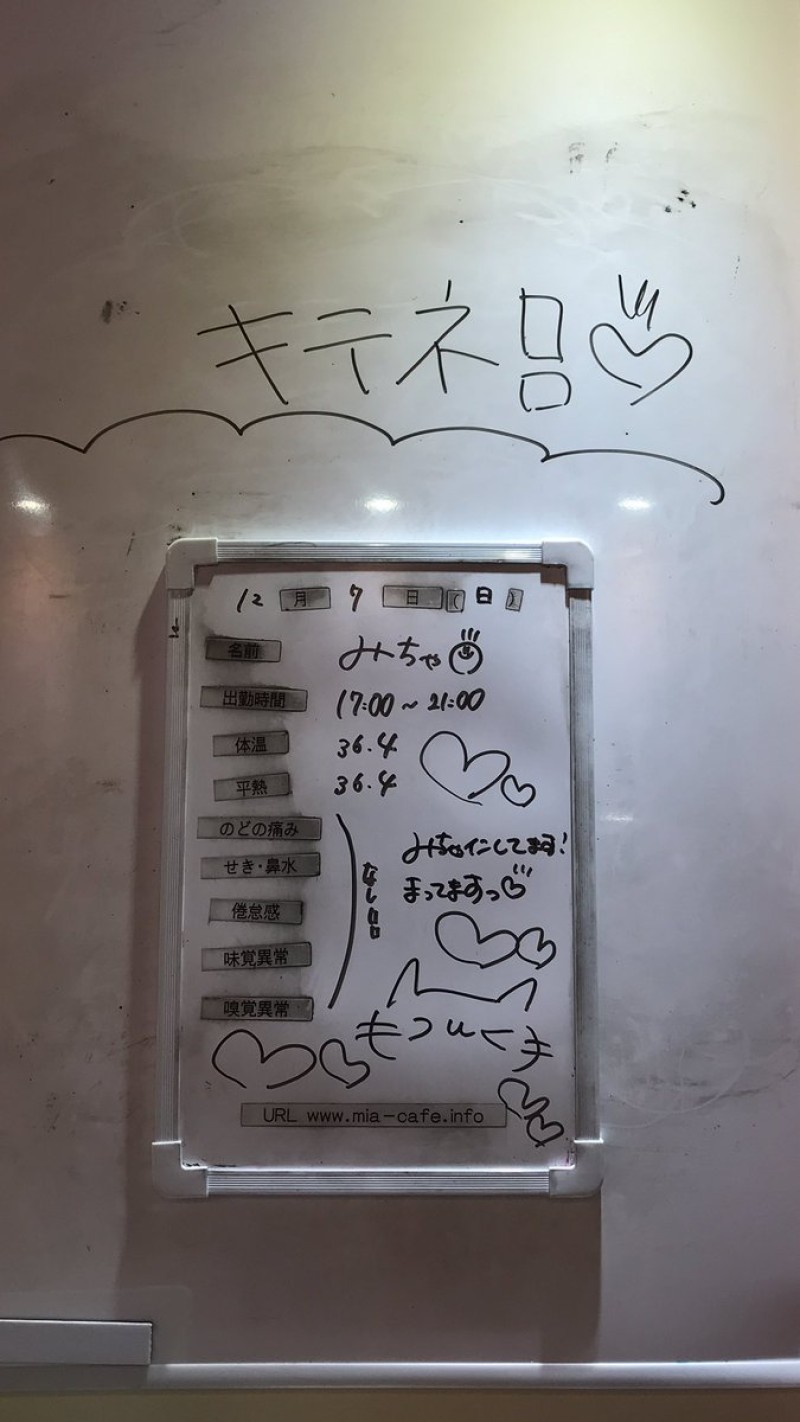 キテネ!!
12 月 7 日 ( 日 )
名前 みちゃ
出勤時間 17:00 ~ 21:00
体温 36.4
平熱 36.4
のどの痛み
せき・鼻水
倦怠感
味覚異常
嗅覚異常
なし!!
みちゃインしてます!
まってますっ
URL www.mia-cafe.info